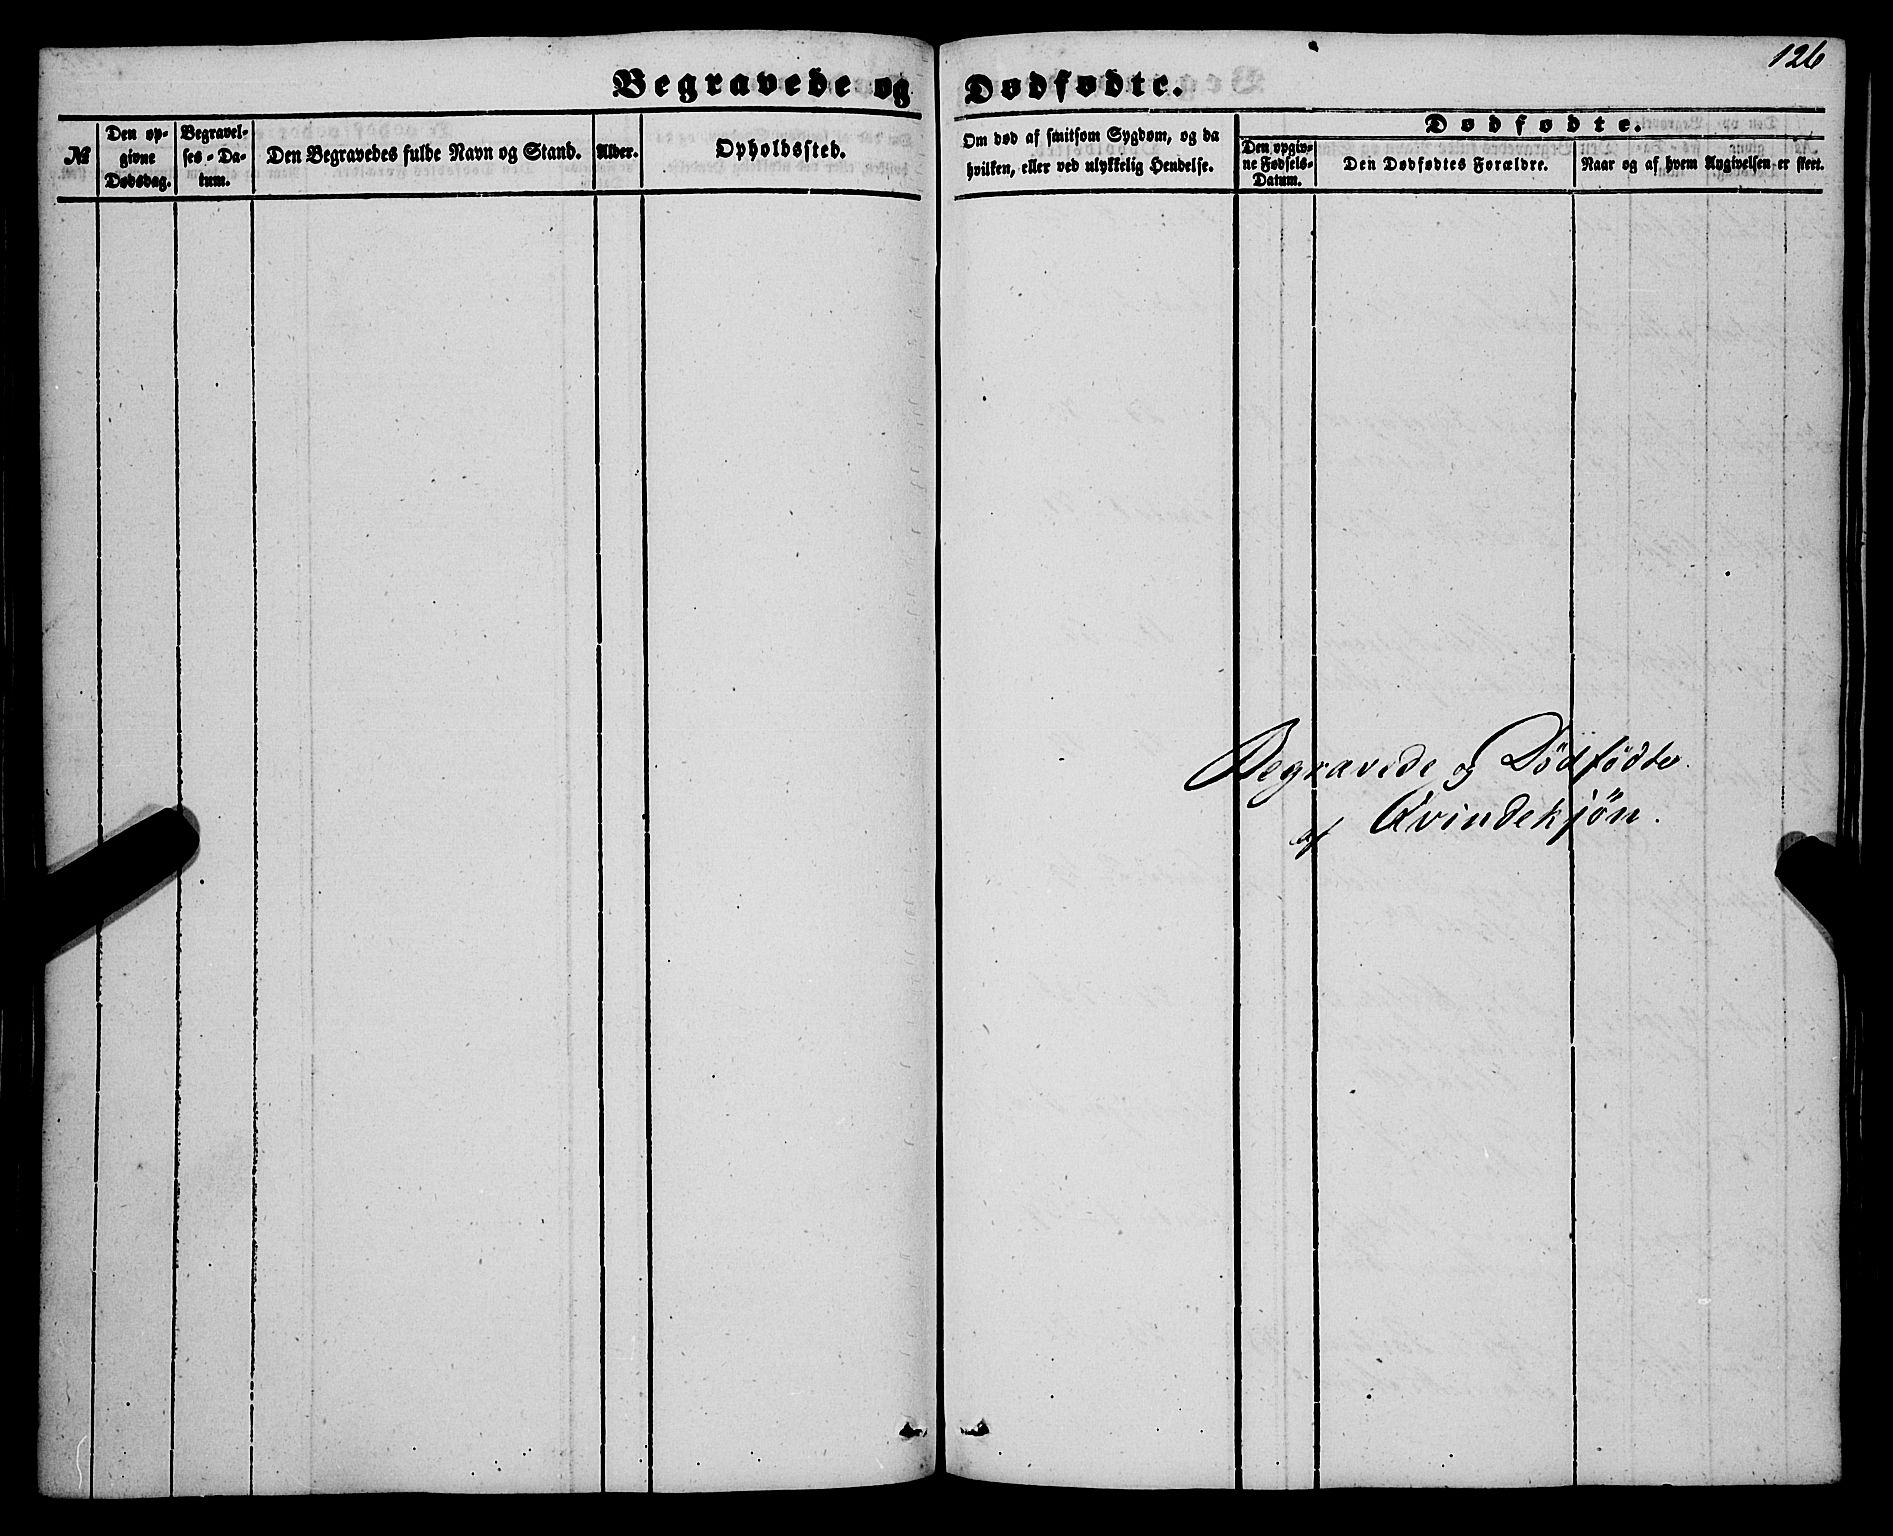 126
Begravede og Dødfødte.
№
Den op-
givne
Dødsdag.
Begravel-
ses - Da-
tum.
Den Begravedes fulde Navn og Stand.
Alder.
Opholdssted.
Om død af smitsom Sygdom, og da
hvilken, eller ved ulykkelig Hendelse.
Dødfødte.
Den opgiv-
ne Fødsels-
Datum.
Den Dødfødtes Forældre.
Naar og af hvem Angivelsen er skeet.
Begravede og Dødfødte
af Qvindekjön.